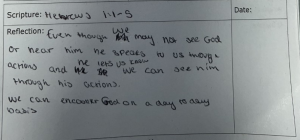 Scripture: Hebrews 1:1-5
Date:
Reflection: Even though we may not see God
or hear him he speaks to us through
actions and he lets us know we can see him
through his actions.
We can encounter God on a day to day
basis